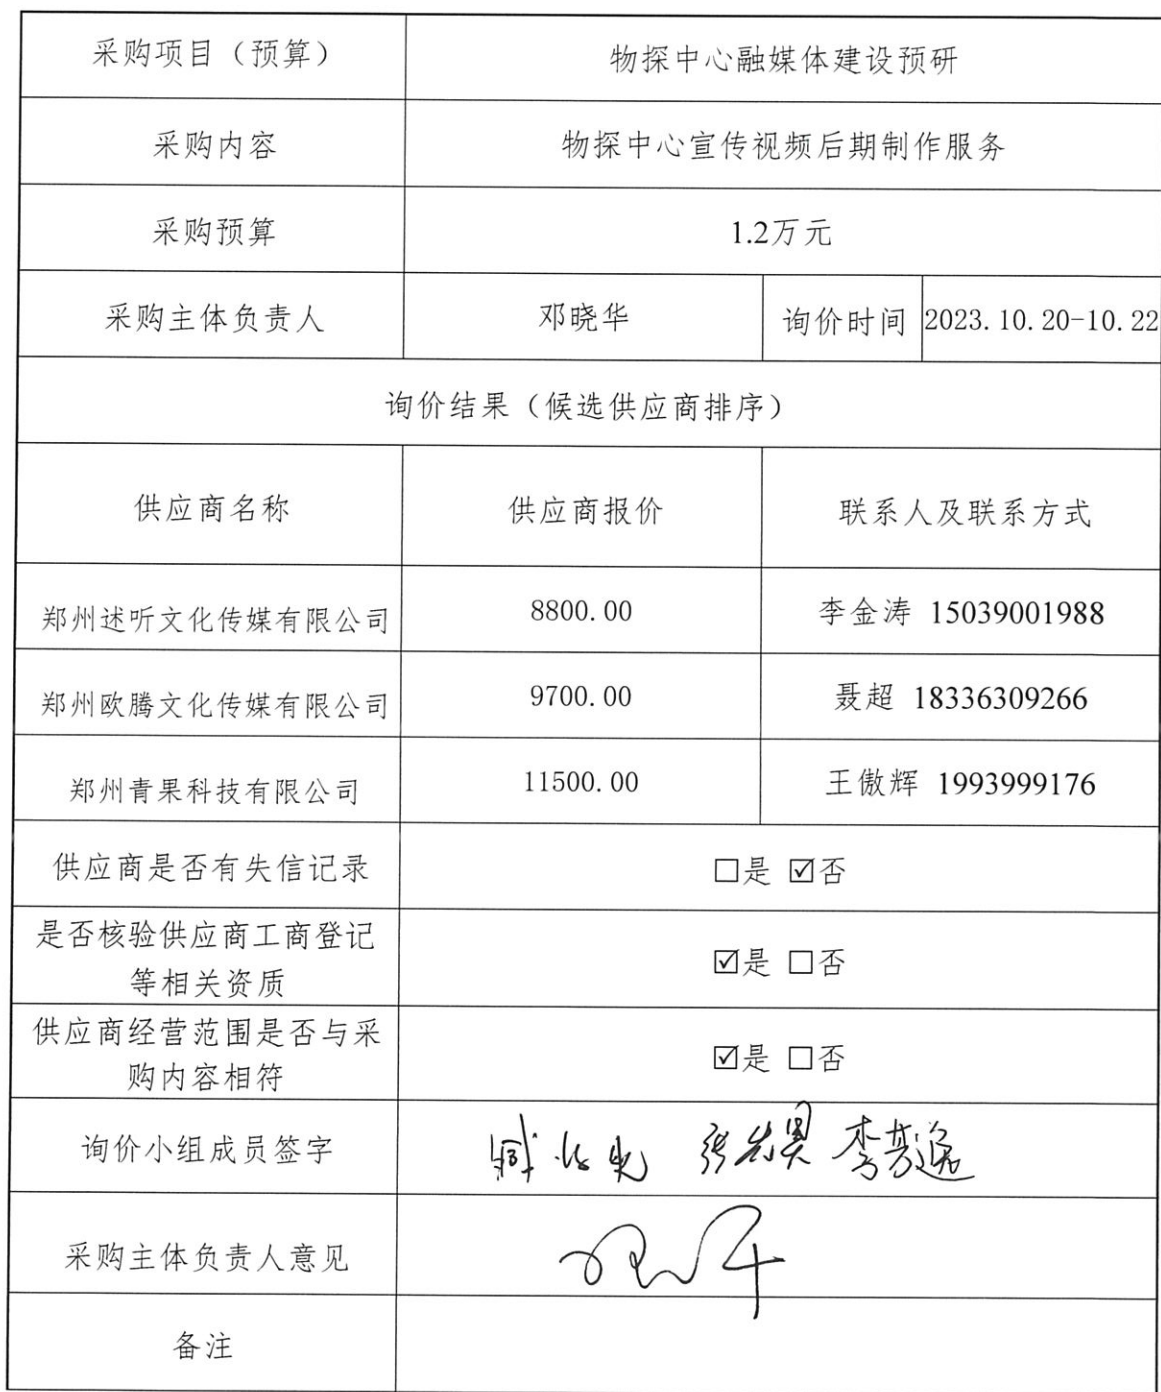 采购项目（预算） 物探中心融媒体建设预研
采购内容 物探中心宣传视频后期制作服务
采购预算 1.2万元
采购主体负责人 邓晓华 询价时间 2023.10.20-10.22
询价结果（候选供应商排序）
供应商名称 供应商报价 联系人及联系方式
郑州述听文化传媒有限公司 8800.00 李金涛 15039001988
郑州欧腾文化传媒有限公司 9700.00 聂超 18336309266
郑州青果科技有限公司 11500.00 王傲辉 1993999176
供应商是否有失信记录 □是 ☑否
是否核验供应商工商登记
等相关资质 ☑是 □否
供应商经营范围是否与采
购内容相符 ☑是 □否
询价小组成员签字
采购主体负责人意见
备注